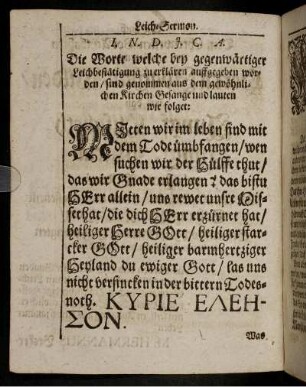 Leich-Sermon.
I. N. D. J. C. A.
Die Worte welche bey gegenwärtiger
Leichbestätigung zu erklären auffgegeben wor-
den / sind genommen aus dem gewöhnli-
chen Kirchen Gesange und lauten
wir folget:
MJtten wir im leben sind mit
dem Tode ümbfangen / wen
suchen wir der Hülffe thut /
das wir Gnade erlangen? das bistu
HErr allein / uns rewet unsre Mis-
sethat / die dich HErr erzürnet hat /
heiliger Herre GOtt / heiliger star-
cker GOtt / heiliger barmhertziger
Heyland du ewiger Gott / las uns
nicht versincken in der bittern Todes-
noth. ΚΥΡΙΕ ΕΛΕΗ-
ΣΟΝ.
Was